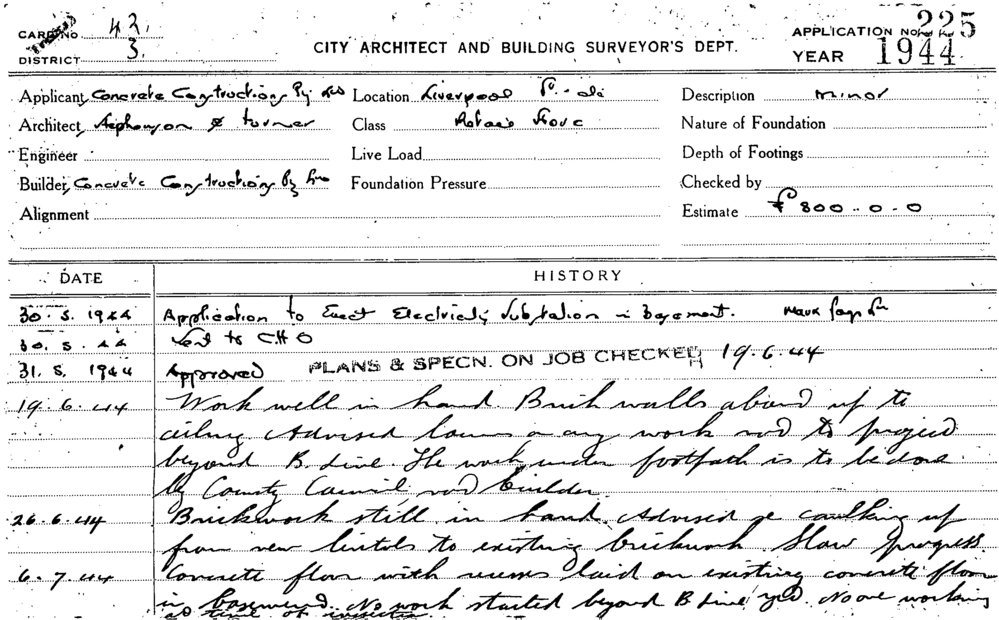 CARD No. 42
DISTRICT 3.
CITY ARCHITECT AND BUILDING SURVEYOR'S DEPT.
APPLICATION No. 225
YEAR 1944
Applicant Concrete Constructions Pty Ltd Location Liverpool Description minor
Architect Stephenson & Turner Class Retail Store Nature of Foundation
Engineer Live Load Depth of Footings
Builder Concrete Constructions Pty Foundation Pressure Checked by
Alignment Estimate £ 800..0.0
DATE HISTORY
30.5.1944 Application to Erect Electricity Substation in Basement.
30.5.44 Sent to CHO
31.5.1944 Approved PLANS & SPECN. ON JOB CHECKED 19.6.44
19.6.44 Work well in hand. Brick walls about up to
ceiling Advised any work not to project
beyond B. Line. The work under footpath is to be done
by County Council, not builder.
26.6.44 Brickwork still in hand. Advised re caulking up
from new lintols to existing brickwork. Slow progress
6.7.44 Concrete floor with recesses laid on existing concrete floor
in basement. No work started beyond B Line yet. No one working
at time of inspection.